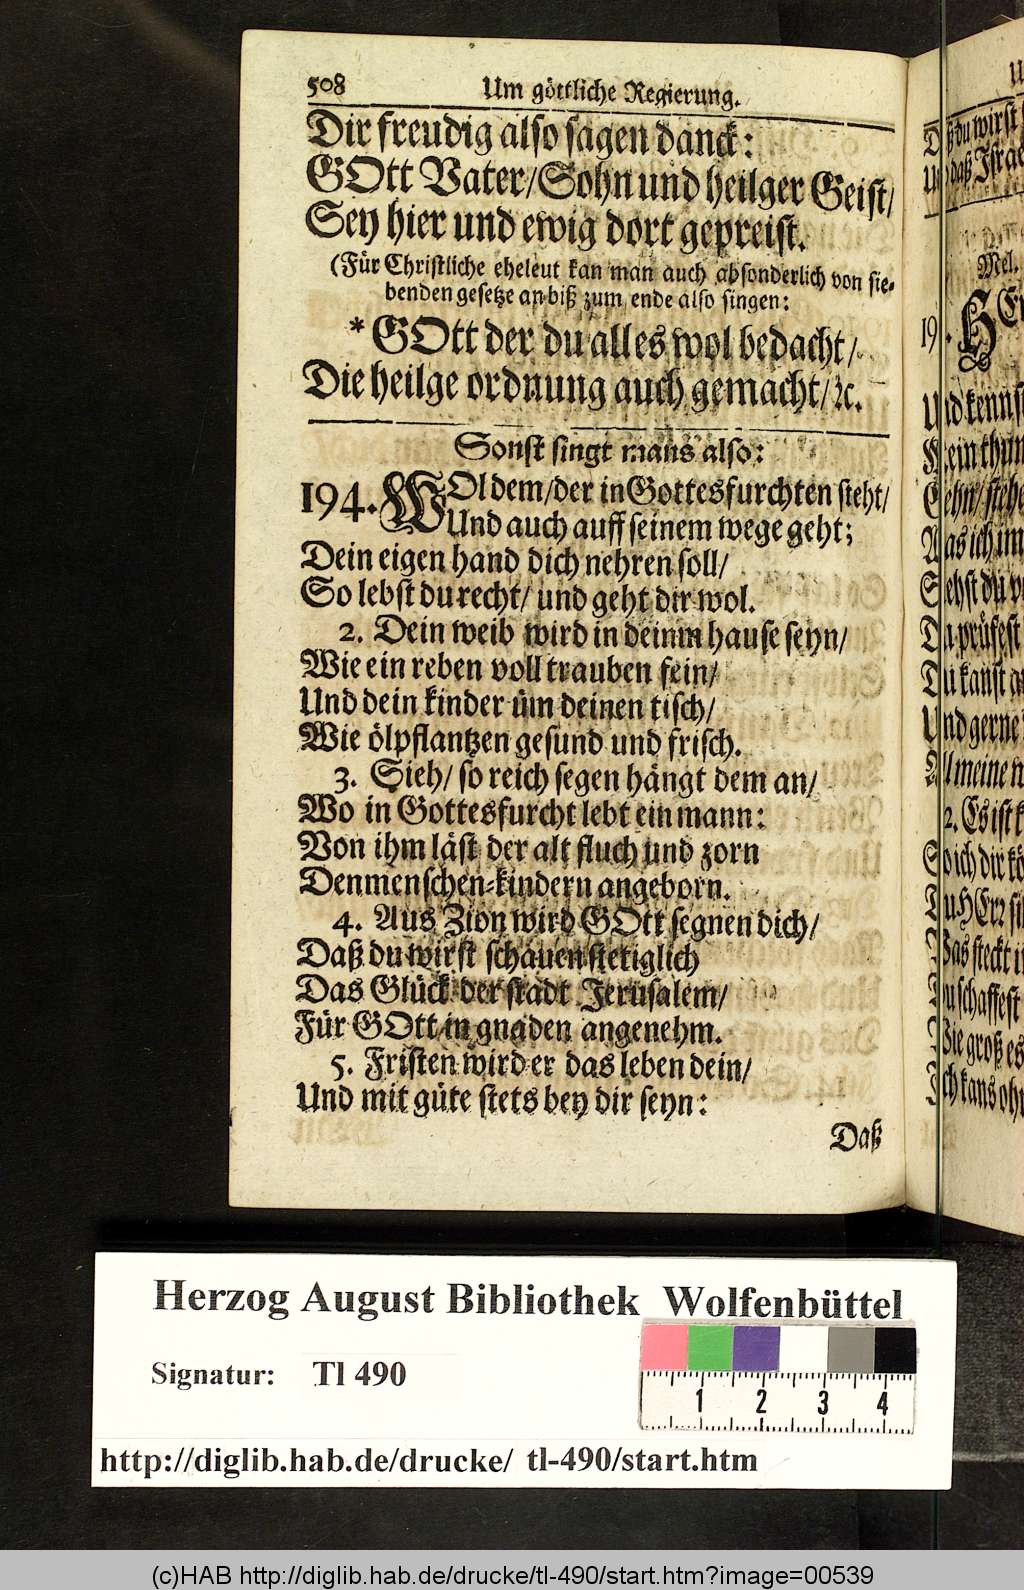 508 Um göttliche Regierung.
Dir freudig also sagen danck:
GOtt Vater/ Sohn und heilger Geist/
Sey hier und ewig dort gepreist.
(Für Christliche eheleut kan man auch absonderlich von sie-
benden gesetze an biß zum ende also singen:
* GOtt der du alles wol bedacht/
Die heilge ordnung auch gemacht/ ꝛc.
Sonst singt mans also:
194. WOl dem/ der in Gottesfurchten steht/
Und auch auff seinem wege geht;
Dein eigen hand dich nehren soll/
So lebst du recht/ und geht dir wol.
2. Dein weib wird in deinm hause seyn/
Wie ein reben voll trauben fein/
Und dein kinder üm deinen tisch/
Wie ölpflantzen gesund und frisch.
3. Sieh/ so reich segen hängt dem an/
Wo in Gottesfurcht lebt ein mann:
Von ihm läst der alt fluch und zorn
Den menschen-kindern angeborn.
4. Aus Zion wird GOtt segnen dich/
Daß du wirst schauen stetiglich
Das Glück der stadt Jerusalem/
Für GOtt in gnaden angenehm.
5. Fristen wird er das leben dein/
Und mit güte stets bey dir seyn:
Daß
daß du wirst
daß Israel
Mel.
19
Und kennst
Mein thun
Sehn/ stehe
Was ich im
Siehst du
Da prüfest
Du kanst
Und gerne
All meine
2. Es ist k
So ich dir kö
Du HErr
Was steckt i
Du schaffest
Wie groß es
Ich kans ohn
Herzog August Bibliothek Wolfenbüttel
Signatur: Tl 490
1 2 3 4
http://diglib.hab.de/drucke/ tl-490/start.htm
(c)HAB http://diglib.hab.de/drucke/tl-490/start.htm?image=00539